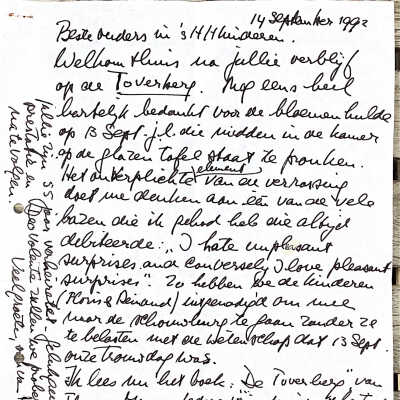 14 September 1992
Beste ouders in 's H/H kinderen.
Welkom thuis na jullie verblijf
op de Toverberg. Nog eens heel
hartelijk bedankt voor de bloemenhulde
op 13 Sept. j.l. die midden in de kamer
op de glazen tafel staat te pronken.
Het onverplichte element van de verrassing
doet me denken aan een van de vele
bazen die ik gehad heb die altijd
debiteerde: "I hate unpleasant
surprises and conversely I love pleasant
surprises". Zo hebben we de kinderen
(Floris & Renaud) uitgenodigd om mee
naar de schouwburg te gaan zonder ze
te belasten met de wetenschap dat 13 Sept.
onze trouwdag was.
Ik lees nu het boek: "De Toverberg" van
jullie zijn 55 jaar
prestatie en
na te volgen.
Veel